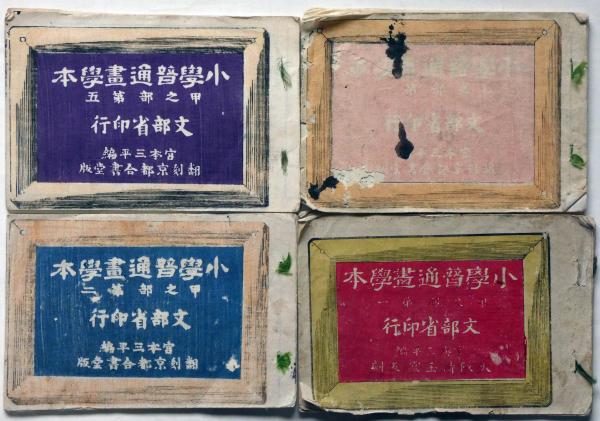 小學普通畫學本
甲之部第五
文部省印行
宮本三平編
翻刻京都合書堂版
小學普通畫學本
文部省印行
小學普通畫學本
甲之部第二
文部省印行
宮本三平編
翻刻京都合書堂版
小學普通畫學本
甲之部第一
文部省印行
宮本三平編